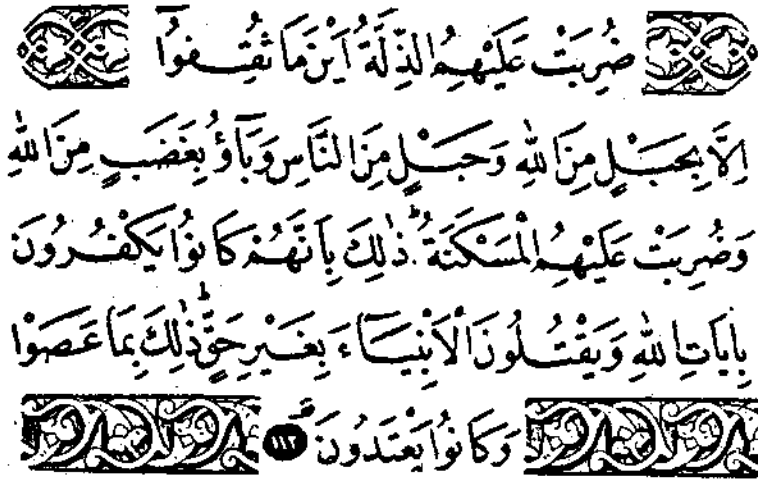 ضُرِبَتْ عَلَيْهِمُ الذِّلَّةُ اَيْنَ مَا ثُقِفُوٓا
اِلَّا بِحَبْلٍ مِنَ اللهِ وَحَبْلٍ مِنَ النَّاسِ وَبَآؤُ بِغَضَبٍ مِنَ اللهِ
وَضُرِبَتْ عَلَيْهِمُ الْمَسْكَنَةُ ذٰلِكَ بِاَنَّهُمْ كَانُوا يَكْفُرُونَ
بِاٰيَاتِ اللهِ وَيَقْتُلُونَ الْاَنْبِيَآءَ بِغَيْرِ حَقٍّ ذٰلِكَ بِمَا عَصَوْا
وَكَانُوا يَعْتَدُونَ ١١٢